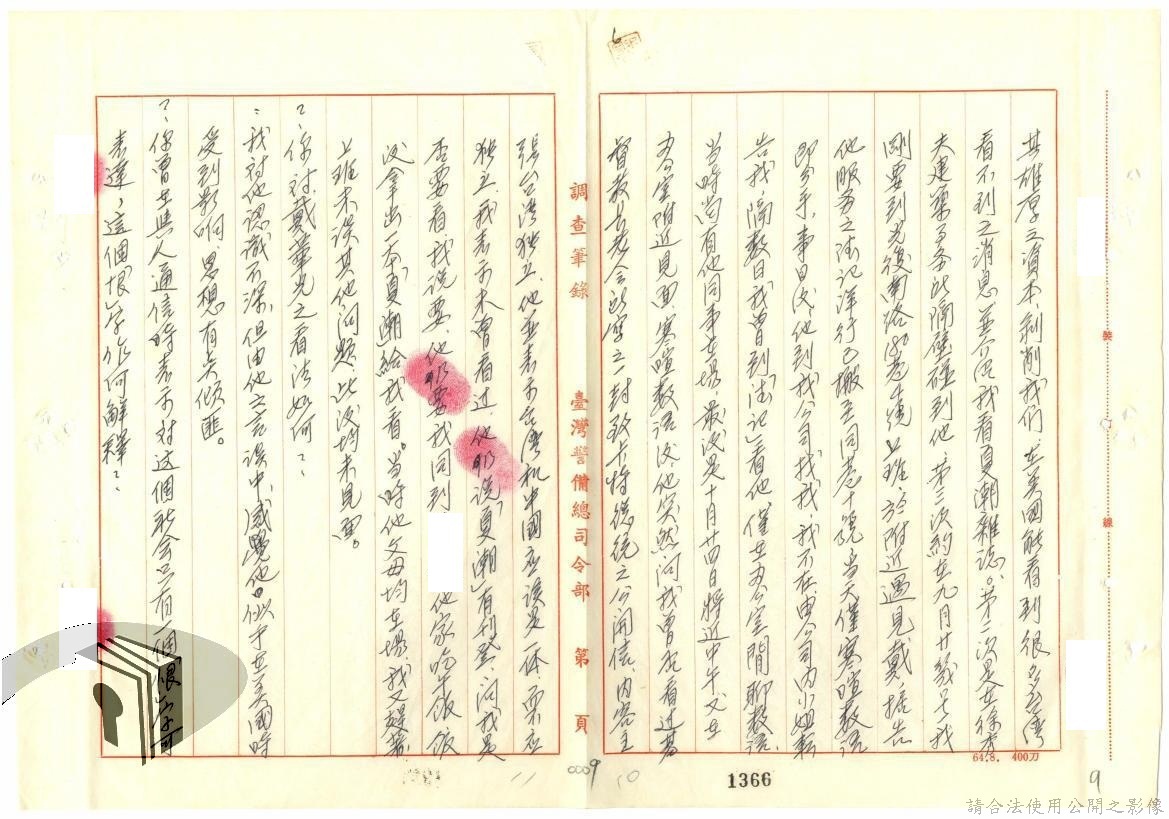 其雄厚之資本,剝削我們,在美國能看到很多台灣
看不到之消息,並介紹我看夏潮雜誌。第二次是在
夫建築事務所隔壁碰到他,第三次約在九月廿幾號我
剛要到光復南路 上班,於附近遇見戴,據告
他服務之法記洋行已搬至同巷十號,當天僅寒喧數語
即分手,事隔 他到我公司找我,我不在由公司內小姐轉
告我,隔數日我曾到「法記」看他,僅在辦公室閒聊數語
當時尚有他同事在場,最後是十月廿四日將近中午又在
辦公室附近見面,寒喧數語後,他突然問我曾否看过基
督教長老会所寫之一封致卡特總統之公開信,內容主
張台湾独立,他並表示台湾和中國应該是一体,不应
独立,我表示未曾看过,他乃說「夏潮」有刊登,问我是
否要看,我说要,他乃要我同到 他家吃午飯,飯
後拿出一本「夏潮」給我看。當時他父母均在場,我又趕著
上班,未談其他问題,此後均未見面。
?、你对戴華光之看法如何?
:我对他認識不深,但由他之言談中,感覺他似乎在美國時
受到影响思想有点倾匪。
?、你曾在與人通信時表示对这個社会只有一個「恨」字可
表達,這個「恨」字作何解釋?
調查筆錄
臺灣警備總司令部
第 頁
裝
線
64.8. 400刀
1366
00009
10
11
9
請合法使用公開之影像